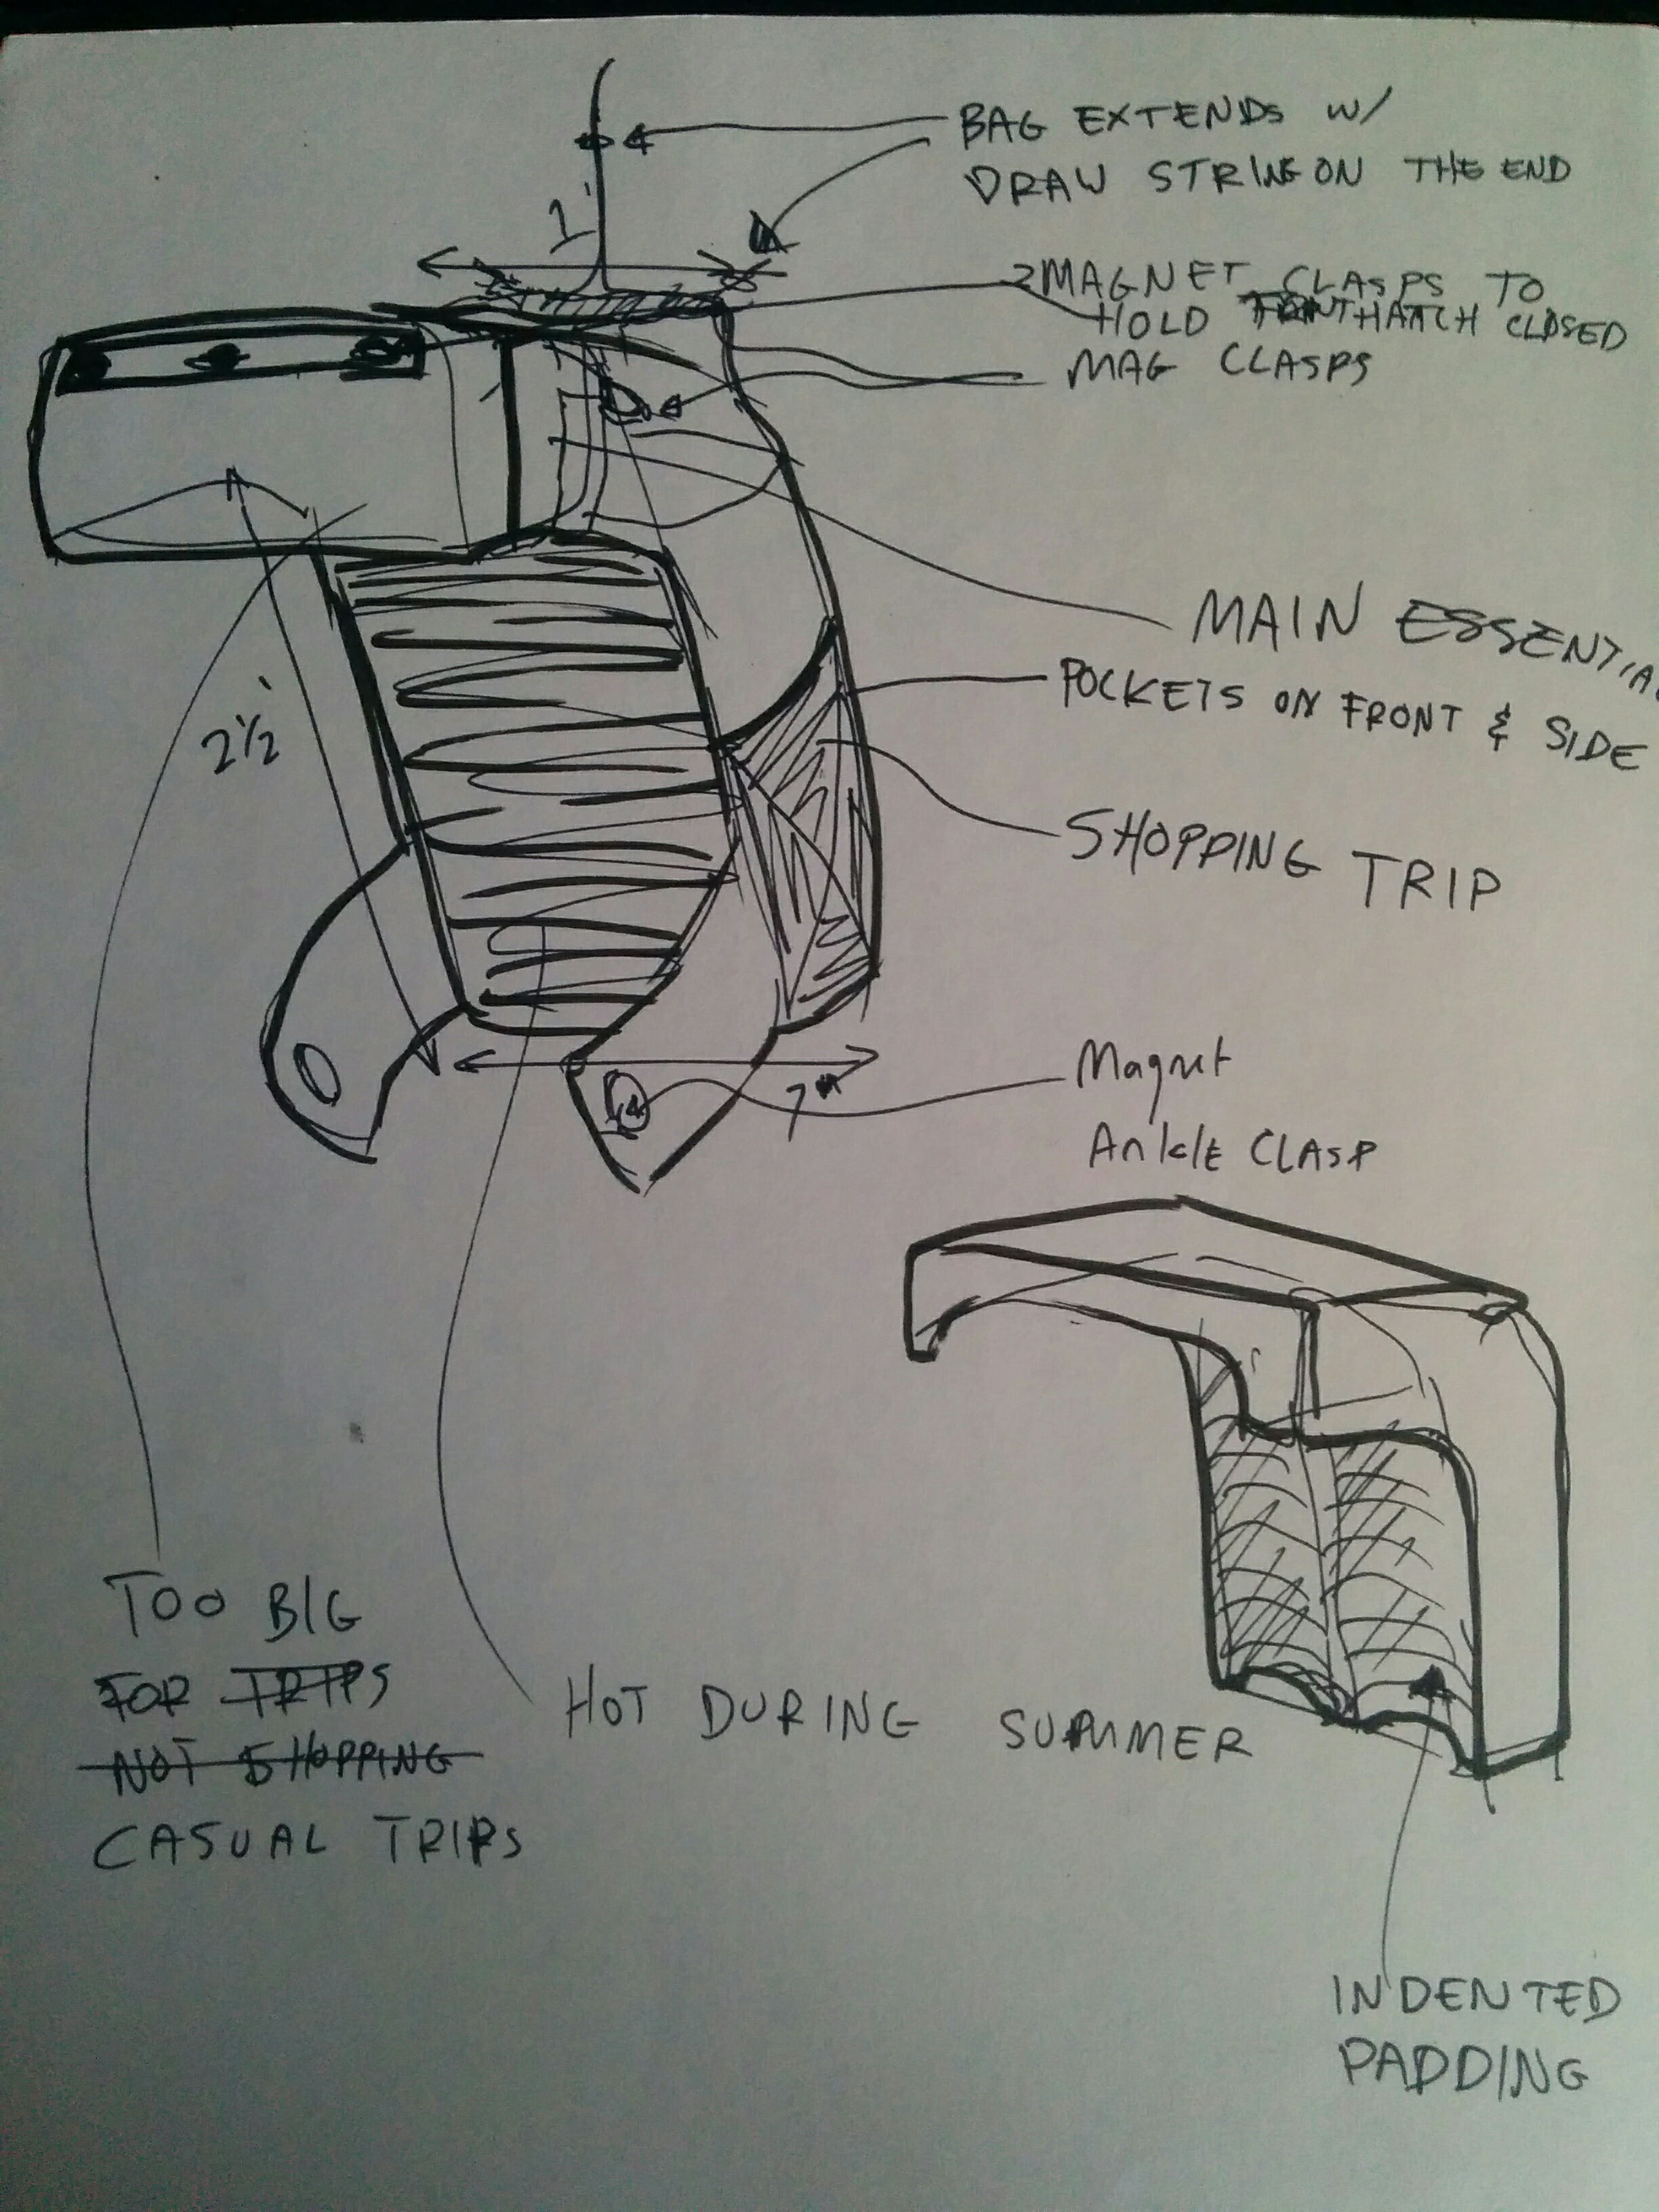 BAG EXTENDS W/
DRAW STRING ON THE END
1'
2 MAGNET CLASPS TO
HOLD HATCH CLOSED
MAG CLASPS
MAIN ESSENTIA
POCKETS ON FRONT & SIDE
2½'
SHOPPING TRIP
7"
Magnet
Ankle CLASP
TOO BIG
FOR TRIPS
NOT SHOPPING
CASUAL TRIPS
HOT DURING SUMMER
INDENTED
PADDING